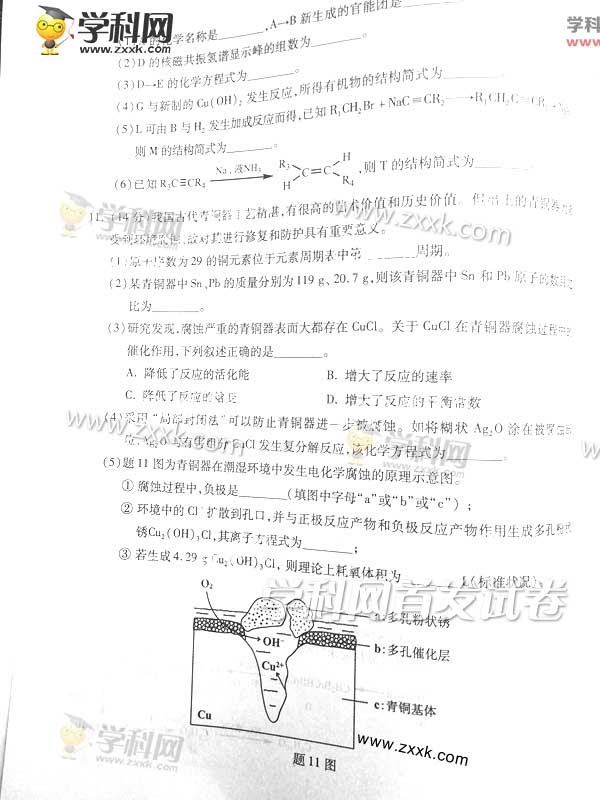 学科网
www.zxxk.com
学科
www.zxxk
化学名称是________,A→B新生成的官能团是
(2)D的核磁共振氢谱显示峰的组数为________。
(3)D→E的化学方程式为________。
(4)G与新制的Cu(OH)₂发生反应,所得有机物的结构简式为________
(5)L可由B与H₂发生加成反应而得,已知R₁CH₂Br+NaC≡CR₂→R₁CH₂C≡CR₂
则M的结构简式为________。
(6)已知R₃C≡CR₄ Na,液NH₃ R₃ H C=C H R₄ ,则T的结构简式为________
11.(14分)我国古代青铜器工艺精湛,有很高的艺术价值和历史价值。但出土的青铜器
受到环境腐蚀,故对其进行修复和防护具有重要意义。
(1)原子序数为29的铜元素位于元素周期表中第________周期。
(2)某青铜器中Sn、Pb的质量分别为119 g、20.7 g,则该青铜器中Sn和Pb原子的数目之
比为________。
(3)研究发现,腐蚀严重的青铜器表面大都存在CuCl。关于CuCl在青铜器腐蚀过程中的
催化作用,下列叙述正确的是________。
A. 降低了反应的活化能 B. 增大了反应的速率
C. 降低了反应的焓变 D. 增大了反应的平衡常数
(4)采用“局部封闭法”可以防止青铜器进一步被腐蚀。如将糊状Ag₂O涂在被腐蚀部
位,Ag₂O与有害组分CuCl发生复分解反应,该化学方程式为________。
(5)题11图为青铜器在潮湿环境中发生电化学腐蚀的原理示意图。
① 腐蚀过程中,负极是________(填图中字母“a”或“b”或“c”);
② 环境中的Cl⁻扩散到孔口,并与正极反应产物和负极反应产物作用生成多孔粉状
锈Cu₂(OH)₃Cl,其离子方程式为________;
③ 若生成4.29 g Cu₂(OH)₃Cl,则理论上耗氧体积为________L(标准状况)。
学科网首发试卷
O₂
a:多孔粉状锈
OH⁻
b:多孔催化层
Cu²⁺
c:青铜基体
Cu
题11图
www.zxxk.com
学科网
www.zxxk.com